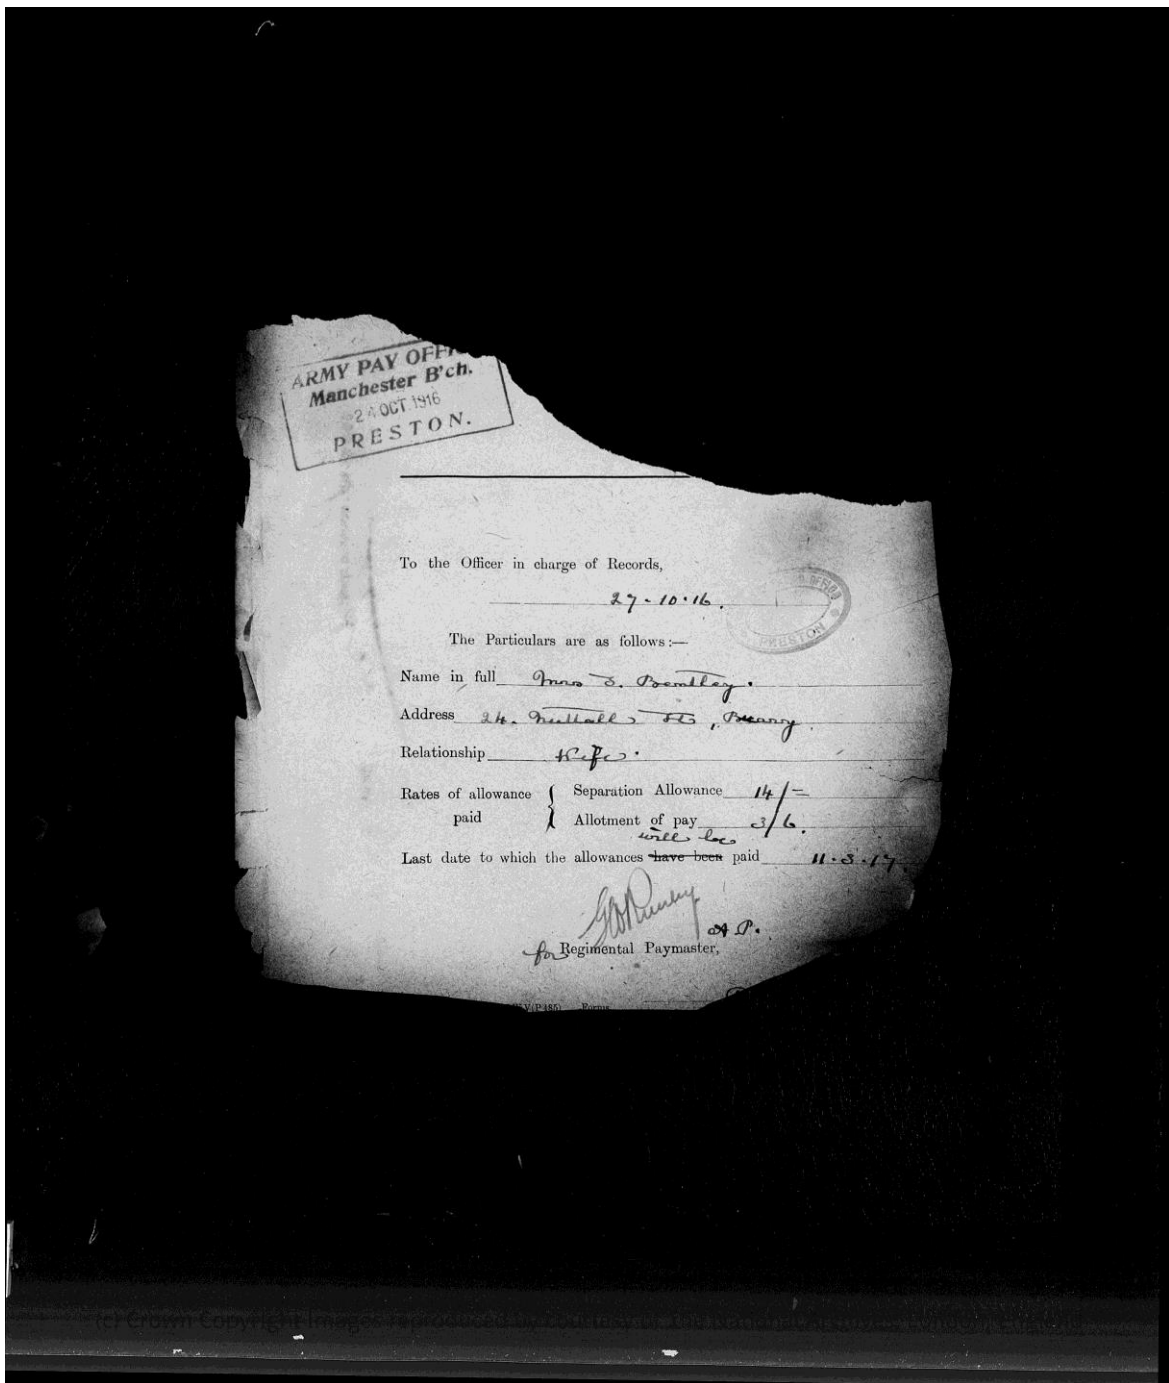 ARMY PAY OFFI
Manchester B'ch.
24 OCT 1916
PRESTON.
To the Officer in charge of Records,
27-10-16.
OFFICE
PRESTON
The Particulars are as follows:—
Name in full Mrs S. Bentley.
Address 24. Nuttall St, Bury.
Relationship Wife.
Rates of allowance paid
Separation Allowance 14/-
Allotment of pay 3/6.
will be
Last date to which the allowances have been paid 11.3.17.
A.P.
for Regimental Paymaster,
Forms
(c) Crown Copyright Images reproduced by courtesy of The National Archives, London, England